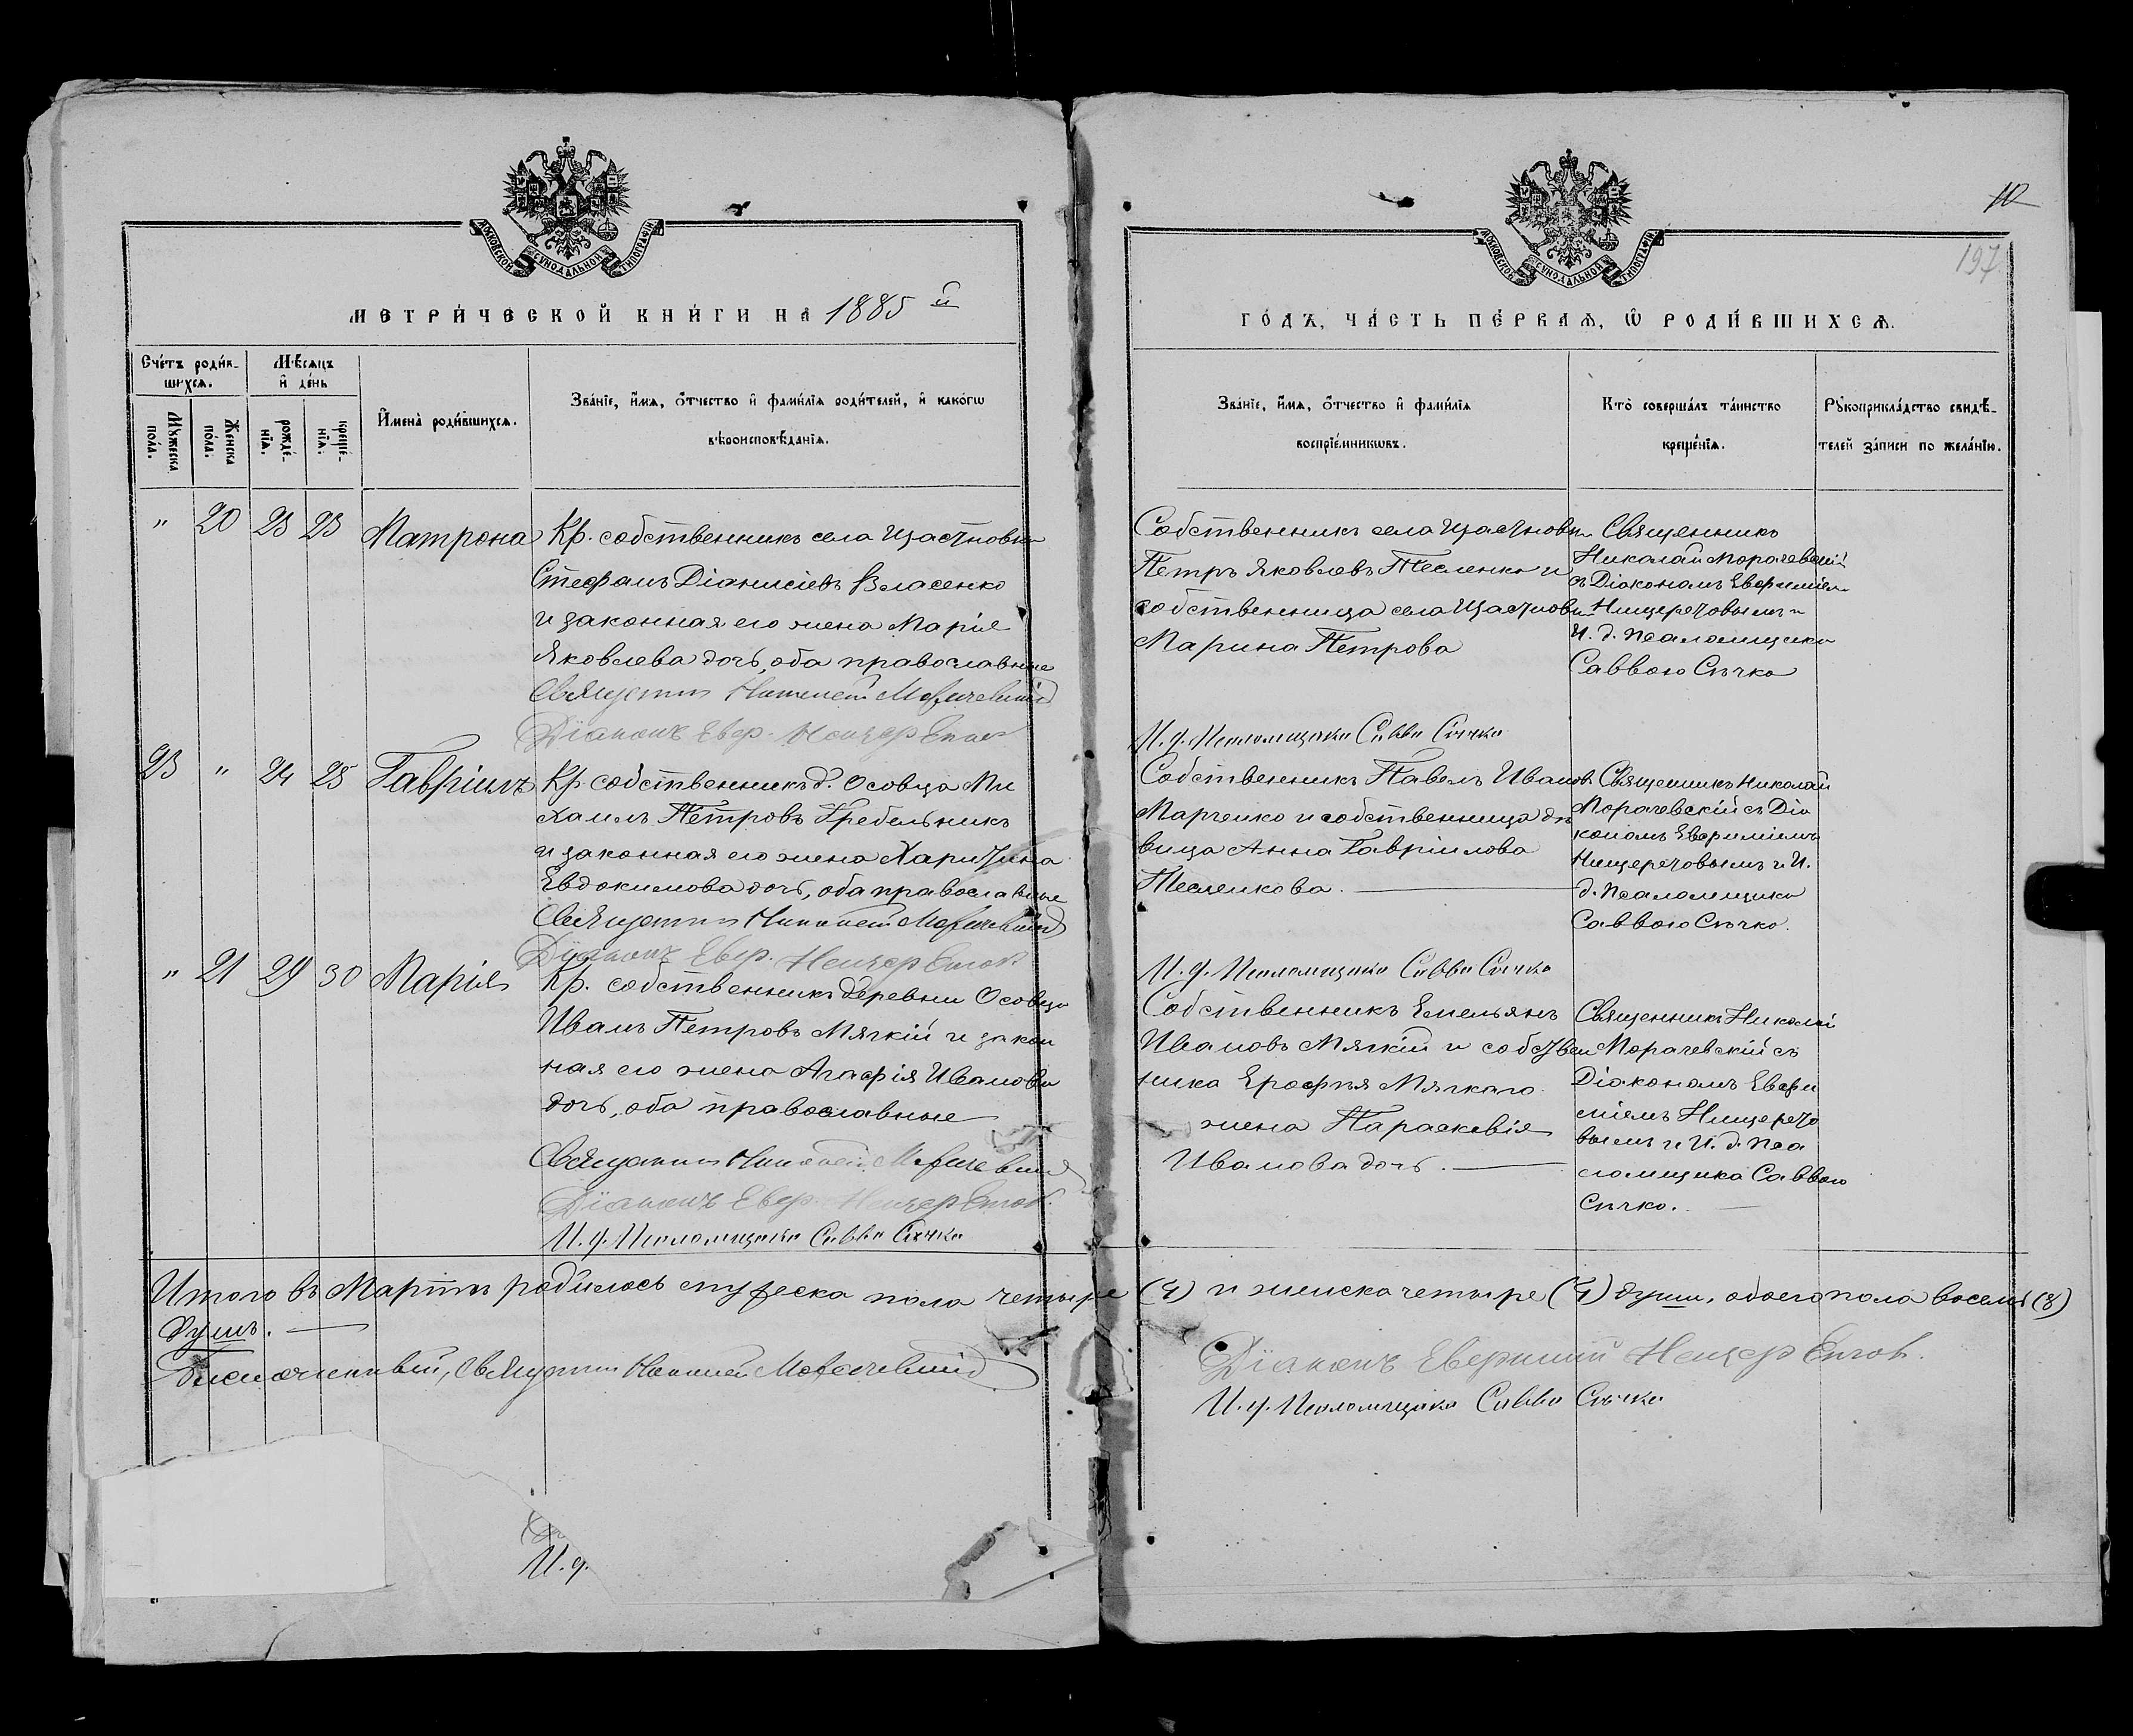 МОСКОВСКОЙ СУНОДАЛЬНОЙ ТИПОГРАФІИ
МЕТРИ́ЧЕСКОЙ КНИ́ГИ НА 1885 й
Сче́тъ роди́в-
шихся.
Мѣсяцъ
и҆ де́нь
Мꙋ́жеска
по́ла.
Же́нска
по́ла.
рожде́-
нїѧ.
креще́-
нїѧ.
И҆мена̀ роди́вшихсѧ.
Зва́нїе, и҆́мѧ, ѻ҆́тчество и҆ фами́лїѧ роди́телей, и҆ како́гѡ
вѣроисповѣ́данїѧ.
„ 20 23 23 Матрона Кр. собственникъ села Щастновки
Стефанъ Діонисіевъ Власенко
и законная его жена Марія
Яковлева дочь, оба православные
Священникъ Николай Морачевскій
Діаконъ Евф.
23 „ 24 25 Гавріилъ Кр. собственникъ д. Осовца Ми
хаилъ Петровъ Гребельникъ
и законная его жена Харитина
Евдокимова дочь, оба православные
Священникъ Николай Морачевскій
Діаконъ Евф.
„ 21 29 30 Марія Кр. собственникъ деревни Осовца
Иванъ Петровъ Мягкій и закон
ная его жена Агафія Иванова
дочь, оба православные
Священникъ Николай Морачевскій
Діаконъ Евф.
И. д. Псаломщика Савва Сѣчко
Итого въ Мартѣ родилось мужеска пола четыре
душъ.
Священникъ Николай Морачевскій
И. д.
10
197
МОСКОВСКОЙ СУНОДАЛЬНОЙ ТИПОГРАФІИ
ГО́ДЪ, ЧА́СТЬ ПЕ́РВАѦ, Ѡ҆ РОДИ́ВШИХСѦ.
Зва́нїе, и҆́мѧ, ѻ҆́тчество и҆ фами́лїѧ
воспрїе́мникѡвъ.
Кто̀ соверша́лъ та́инство
креще́нїѧ.
Рꙋкоприкла́дство свидѣ́-
телей за́писи по жела́нїю.
Собственникъ села Щастновки
Петръ Яковлевъ Тесленко и
собственница села Щастновки
Марина Петрова
И. д. Псаломщика Савва Сѣчко
Священникъ
Николай Морачевскій
съ Діакономъ Евфиміемъ
Нищеретовымъ и
И. д. Псаломщика
Саввою Сѣчко
Собственникъ Павелъ Ивановъ
Марченко и собственница дѣ
вица Анна Гавріилова
Тесленкова.
И. д. Псаломщика Савва Сѣчко
Священникъ Николай
Морачевскій съ Діа
кономъ Евфиміемъ
Нищеретовымъ и И.
д. Псаломщика
Саввою Сѣчко.
Собственникъ Емельянъ
Ивановъ Мягкій и собствен
ника Ерофѣя Мягкаго
жена Параскевія
Иванова дочь.
Священникъ Николай
Морачевскій съ
Діакономъ Евфи
міемъ Нищерето
вымъ и И. д. Пса
ломщика Саввою
Сѣчко.
(4) и женска четыре (4) души, обоего пола восемь (8)
Діаконъ Евфимій
И. д. Псаломщика Савва Сѣчко